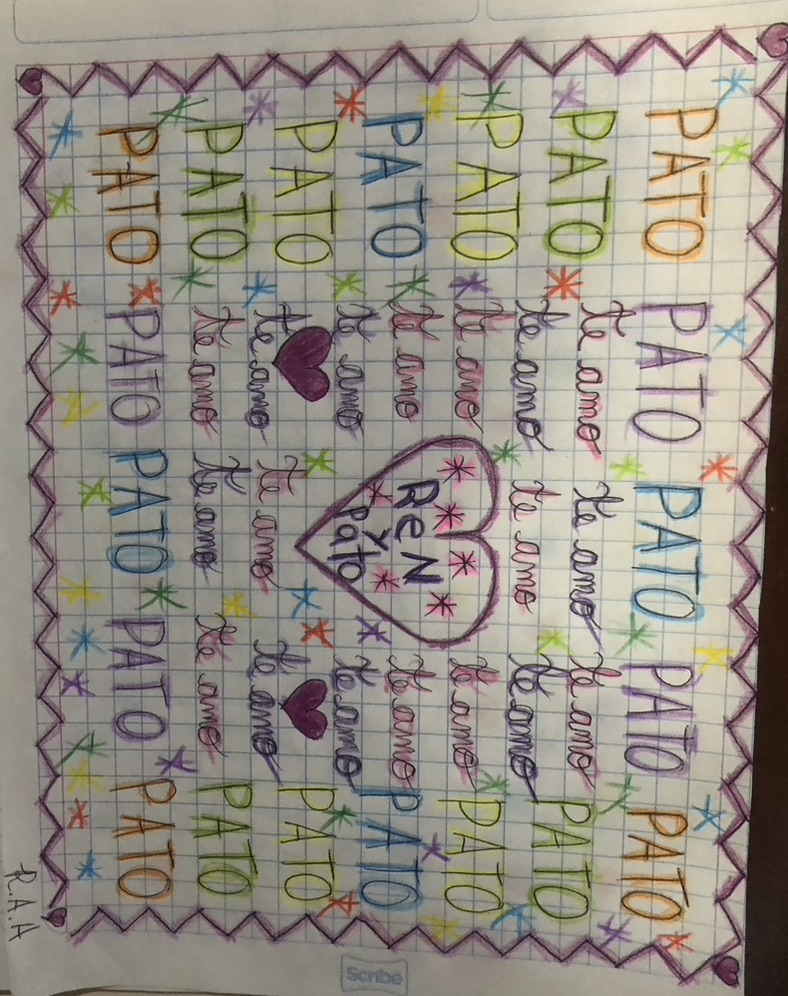 PATO PATO PATO PATO PATO
PATO te amo te amo te amo PATO
te amo te amo te amo
PATO te amo te amo PATO
PATO te amo ReN te amo PATO
y
te amo Pato te amo
PATO PATO
te amo te amo te amo
PATO te amo te amo te amo PATO
PATO PATO PATO PATO PATO
R.A.A
Scribe